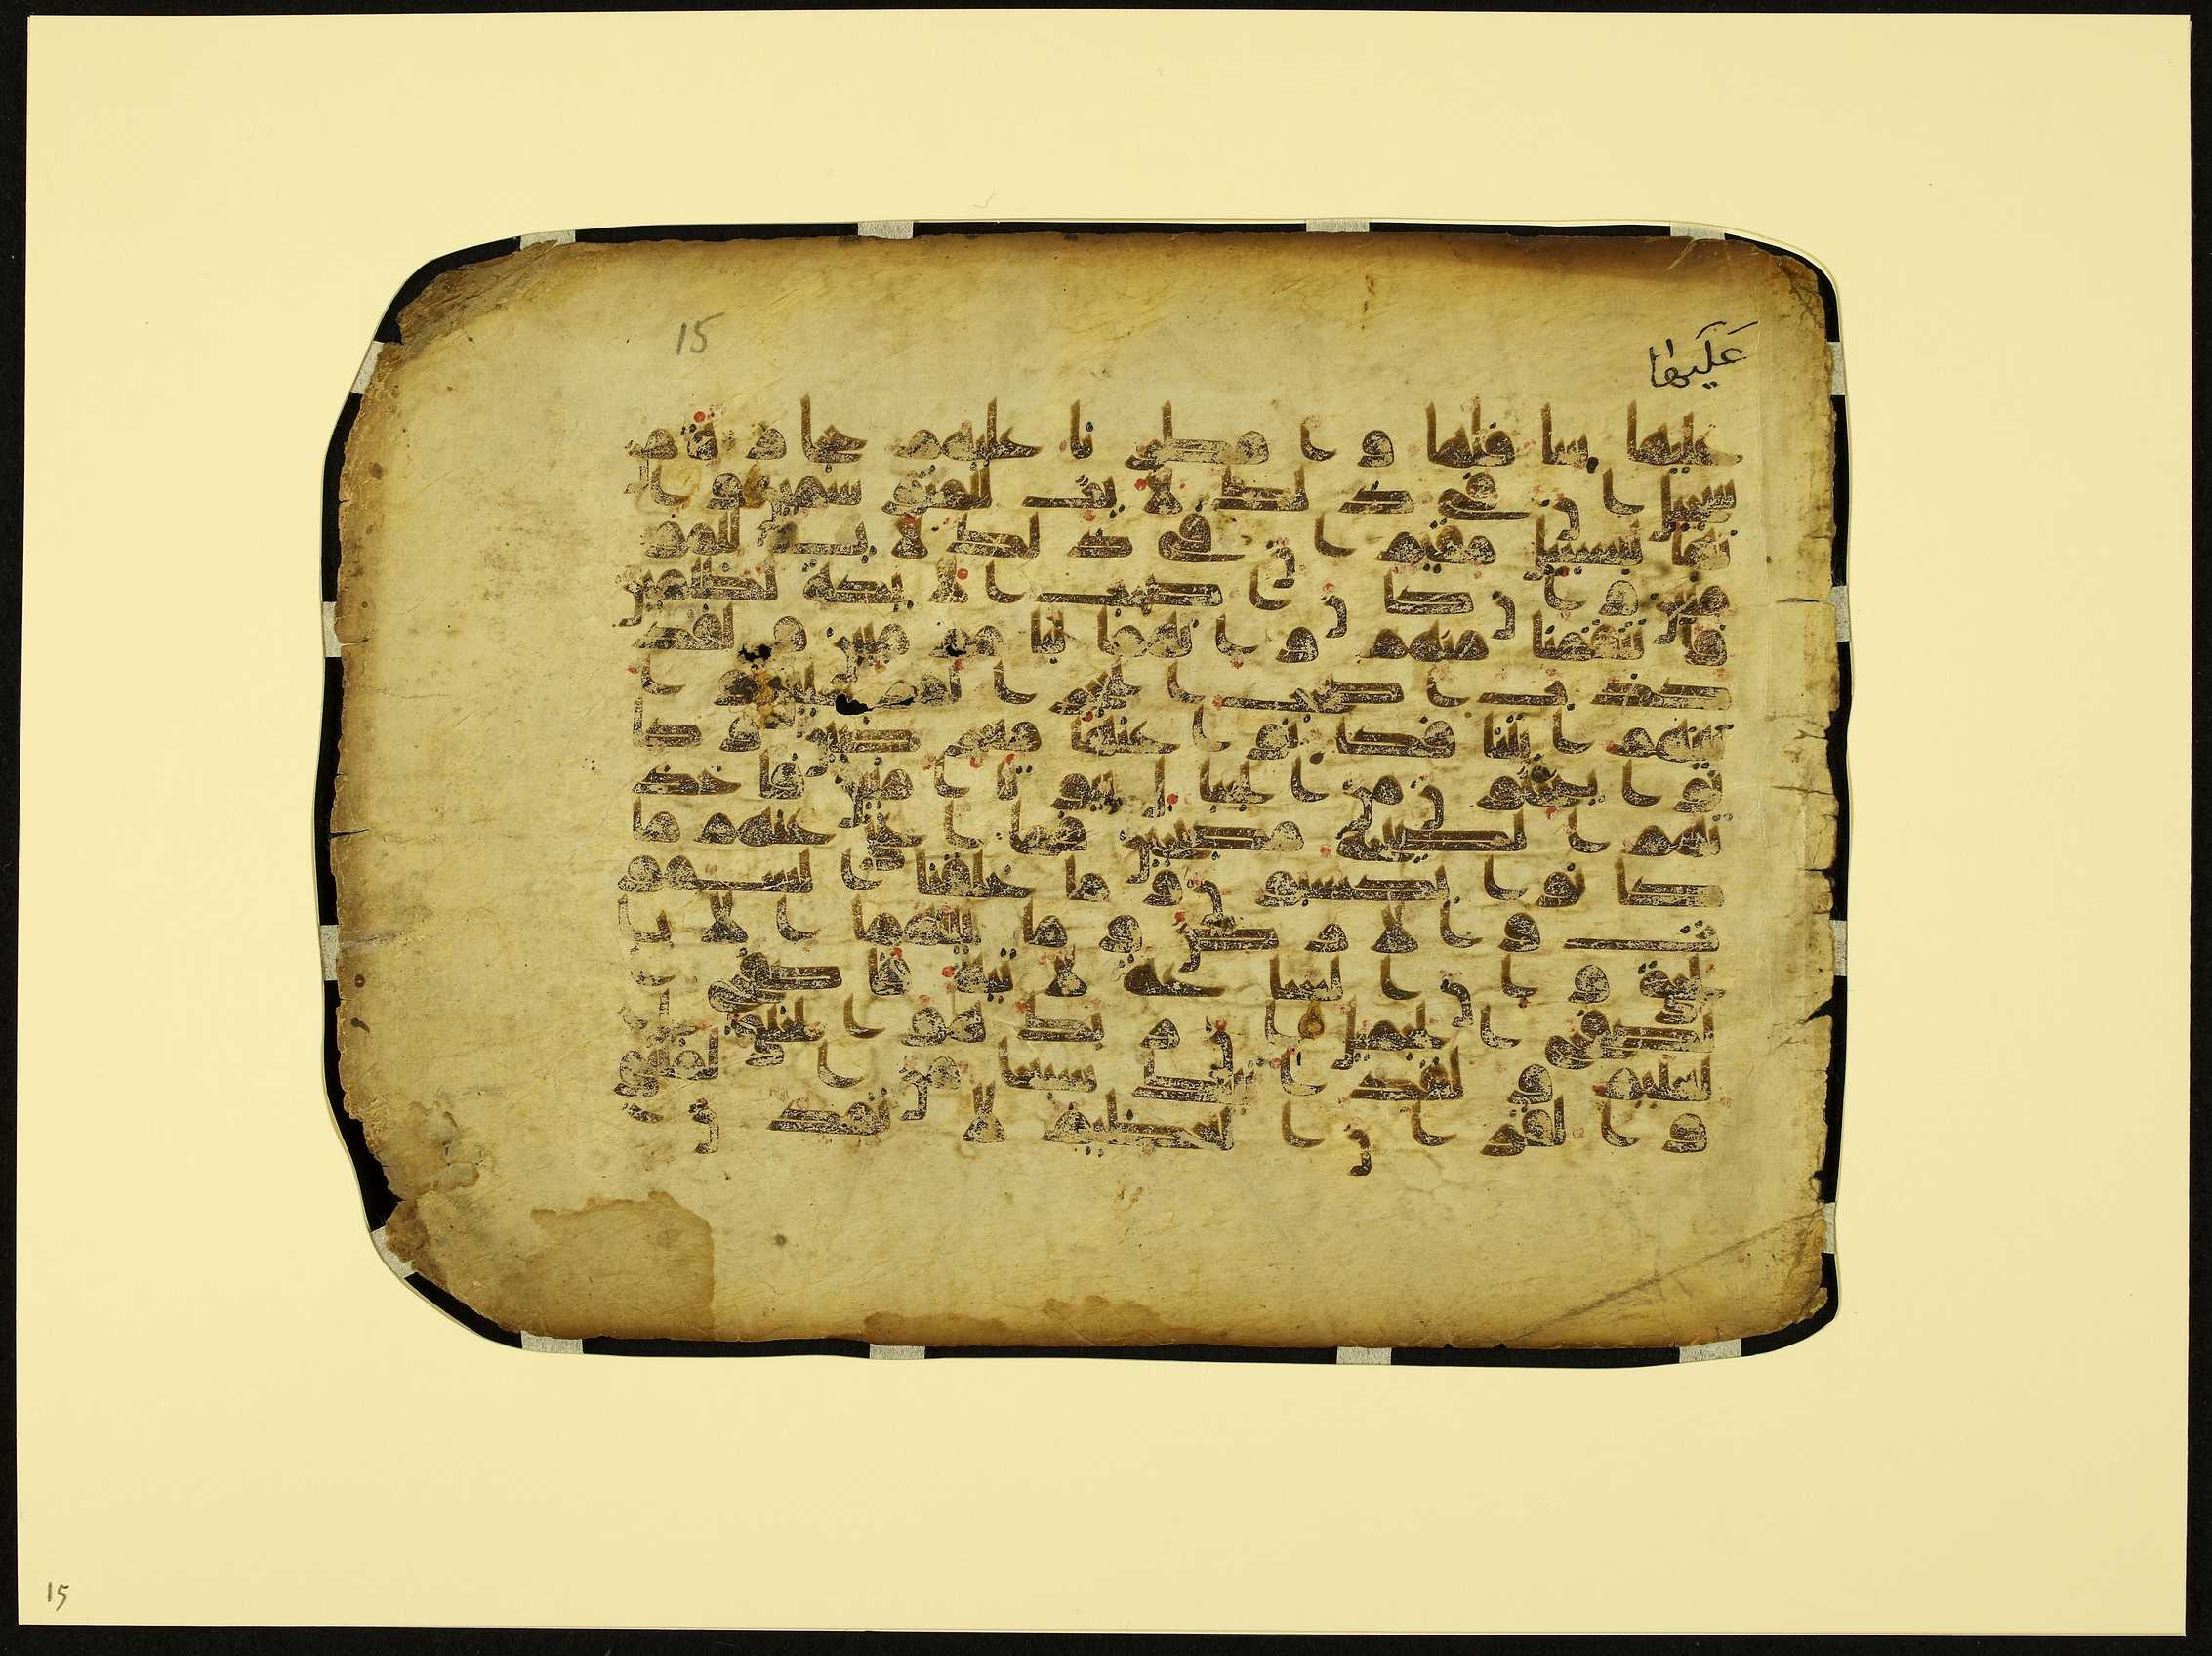 15
عَلَيها
عليها سافلها وامطرنا عليهم حجارة من
سجيل ان في ذلك لايت للمتوسمين وا
نها لبسبيل مقيم ان في ذلك لاية للمو
منين وان كان اصحب الايكة لظلمين
فانتقمنا منهم وانهما لبامام مبين ولقد
كذب اصحب الحجر المرسلين وا
تينهم ايتنا فكانوا عنها معرضين وكا
نوا ينحتون من الجبال بيوتا امنين فاخذ
تهم الصيحة مصبحين فما اغنى عنهم ما
كانوا يكسبون وما خلقنا السمو
ت والارض وما بينهما الا با
لحق وان الساعة لاتية فاصفح
الصفح الجميل ان ربك هو الخلق ا
لعليم ولقد اتينك سبعا من المثني
والقران العظيم لا تمدن
15